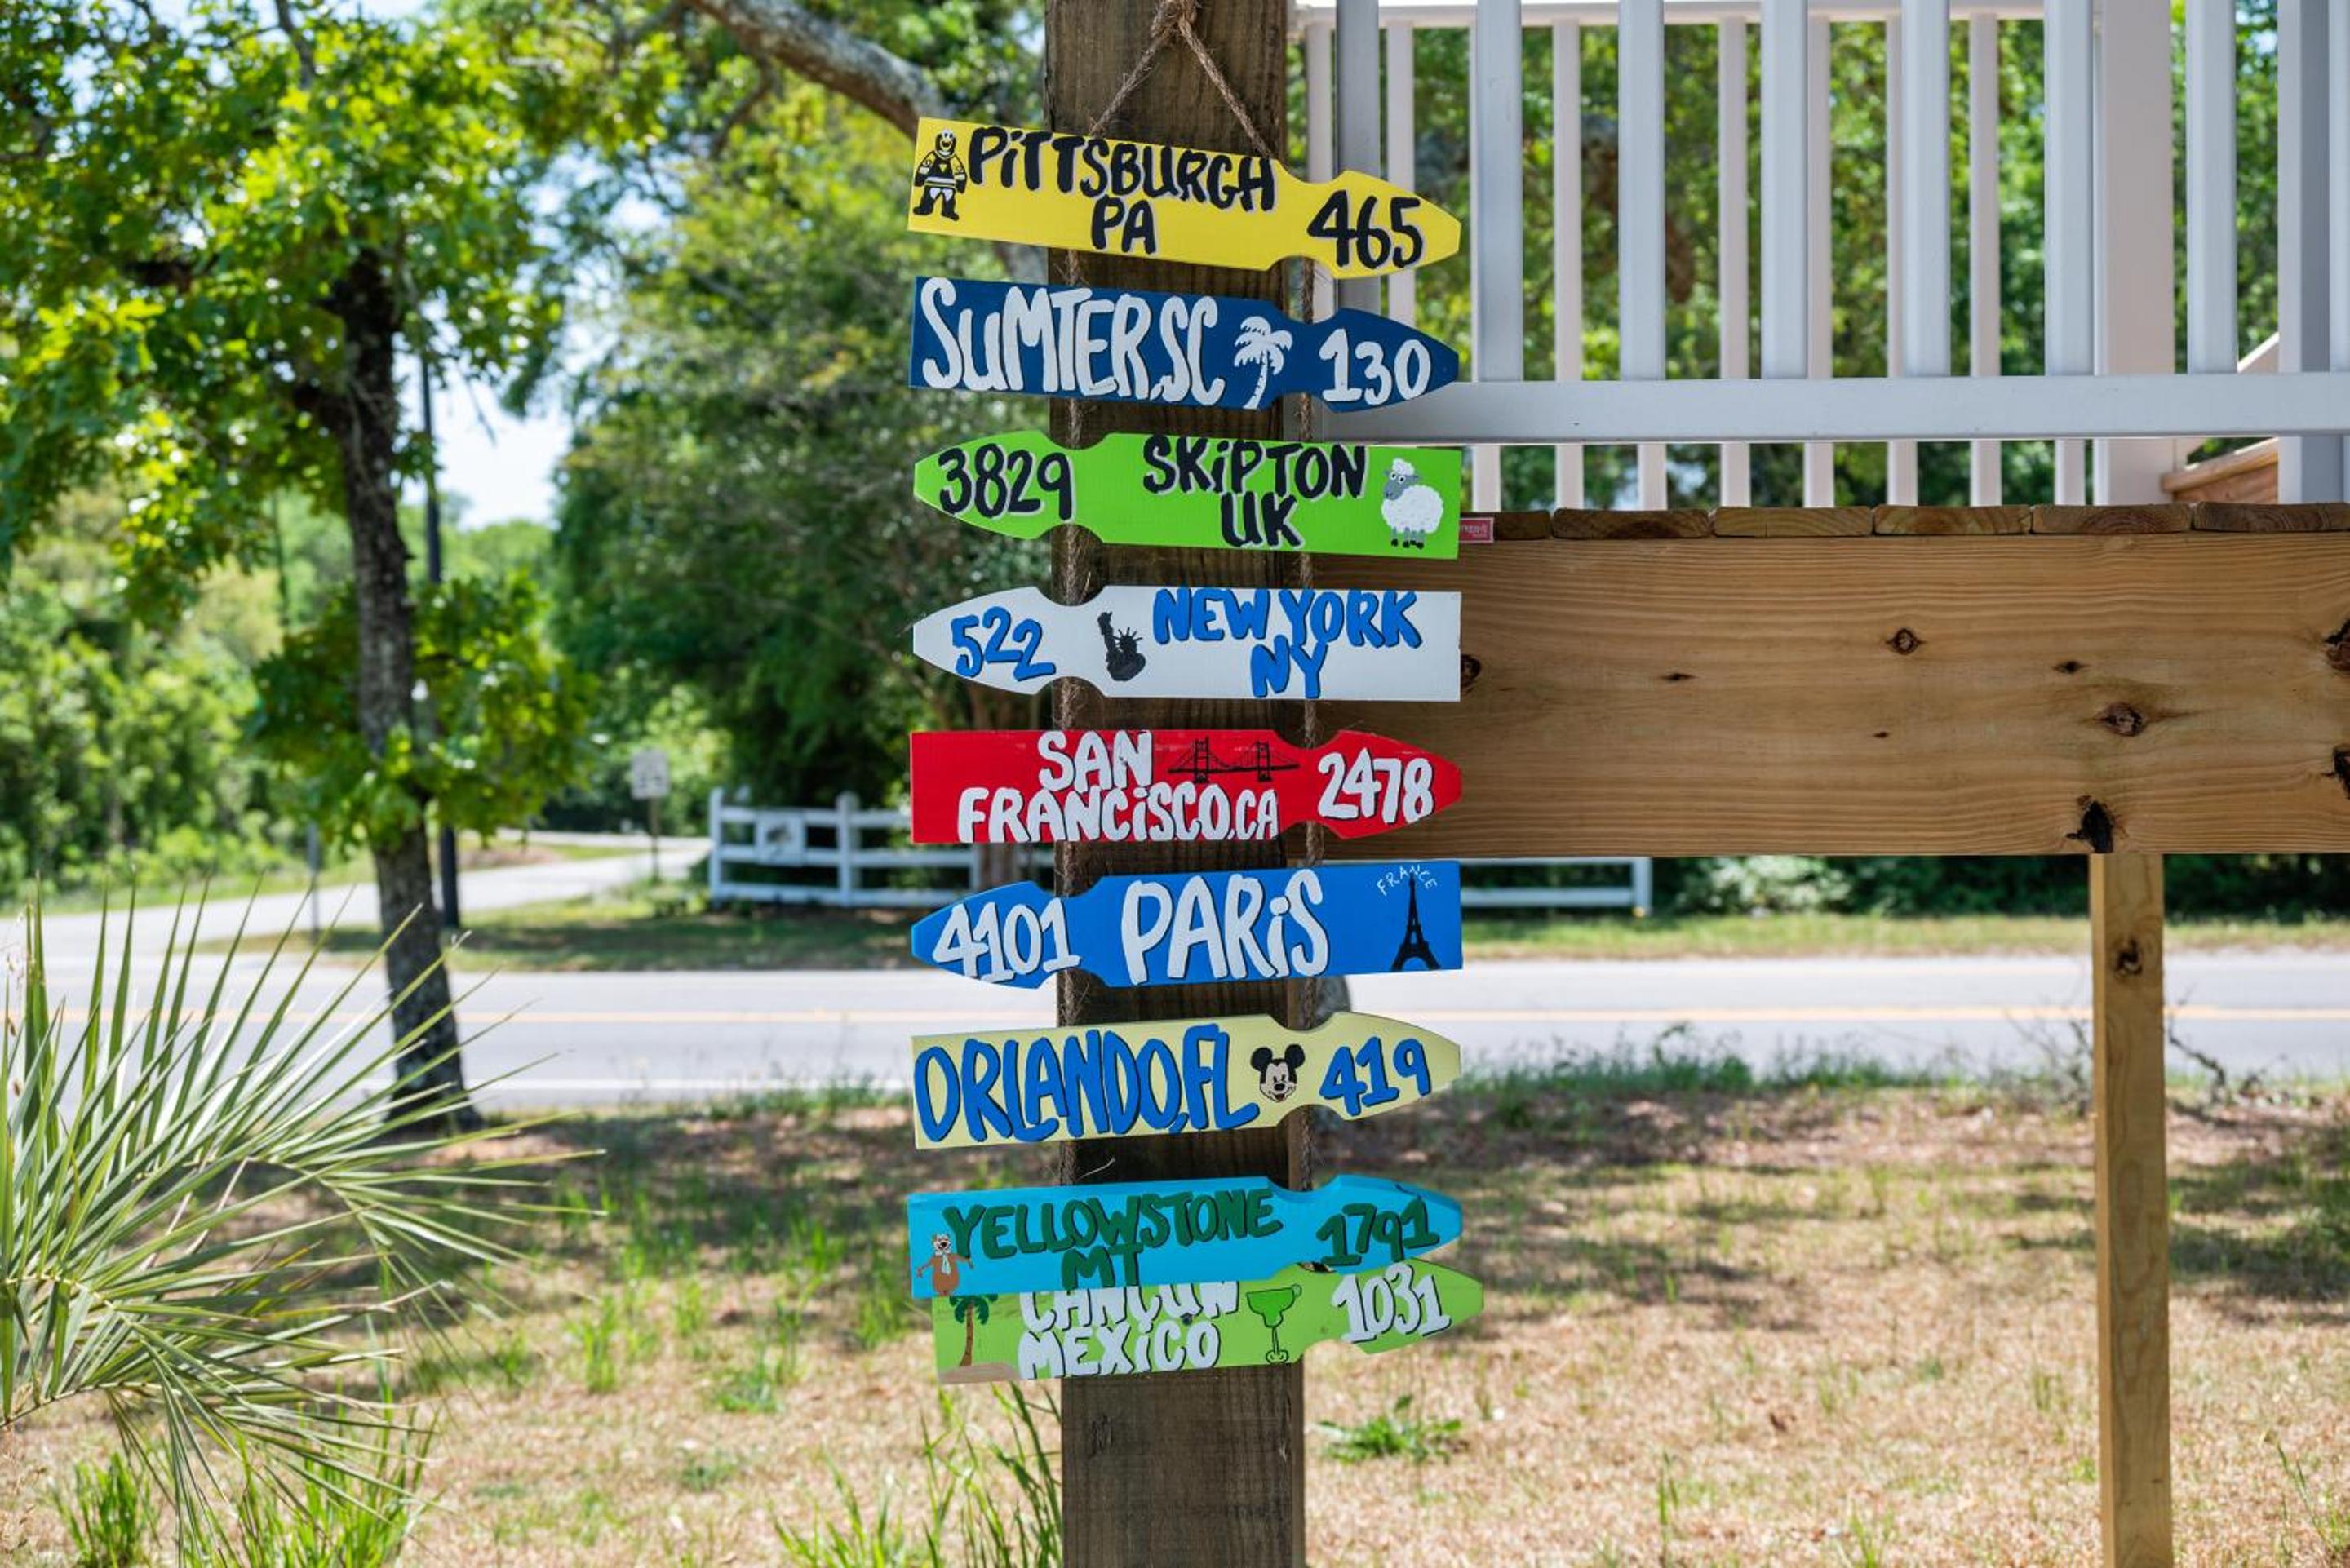 PiTTSBURGH
PA 465
SUMTER,SC 130
3829 SKiPTON
UK
522 NEW YORK
NY
SAN
FRANCiSCO,CA 2478
FRANCE
4101 PARiS
ORLANDO,FL 419
YELLOWSTONE
MT 1791
CANCUN
MEXiCO 1031